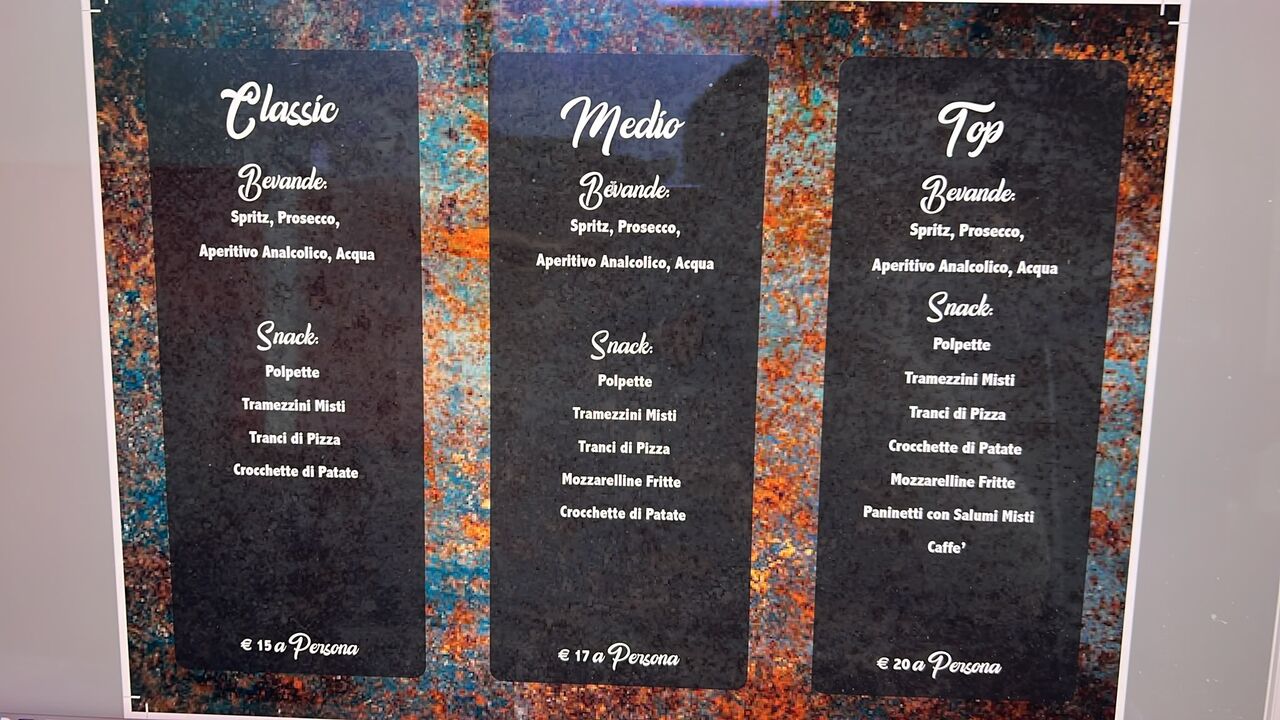 Classic
Bevande:
Spritz, Prosecco,
Aperitivo Analcolico, Acqua
Snack:
Polpette
Tramezzini Misti
Tranci di Pizza
Crocchette di Patate
€ 15 a Persona
Medio
Bevande:
Spritz, Prosecco,
Aperitivo Analcolico, Acqua
Snack:
Polpette
Tramezzini Misti
Tranci di Pizza
Mozzarelline Fritte
Crocchette di Patate
€ 17 a Persona
Top
Bevande:
Spritz, Prosecco,
Aperitivo Analcolico, Acqua
Snack:
Polpette
Tramezzini Misti
Tranci di Pizza
Crocchette di Patate
Mozzarelline Fritte
Paninetti con Salumi Misti
Caffe’
€ 20 a Persona